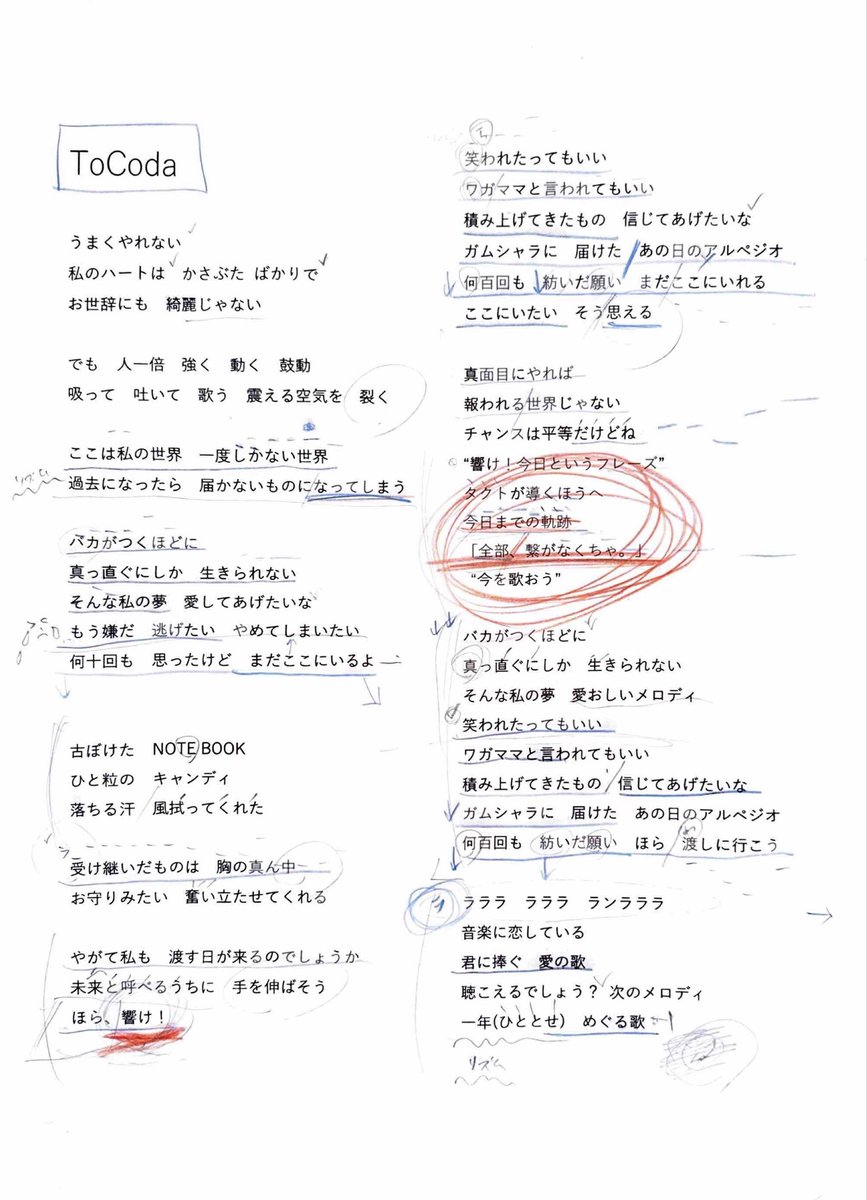 ToCoda
うまくやれない
私のハートは　かさぶた　ばかりで
お世辞にも　綺麗じゃない
でも　人一倍　強く　動く　鼓動
吸って　吐いて　歌う　震える空気を　裂く
ここは私の世界　一度しかない世界
リズム
過去になったら　届かないものになってしまう
バカがつくほどに
真っ直ぐにしか　生きられない
そんな私の夢　愛してあげたいな
もう嫌だ　逃げたい　やめてしまいたい
何十回も　思ったけど　まだここにいるよ
古ぼけた　NOTE BOOK
ひと粒の　キャンディ
落ちる汗　風拭ってくれた
受け継いだものは　胸の真ん中
お守りみたい　奮い立たせてくれる
やがて私も　渡す日が来るのでしょうか
未来と呼べるうちに　手を伸ばそう
ほら、響け！
笑われたってもいい
ワガママと言われてもいい
積み上げてきたもの　信じてあげたいな
ガムシャラに　届けた　あの日のアルペジオ
何百回も　紡いだ願い　まだここにいれる
ここにいたい　そう思える
真面目にやれば
報われる世界じゃない
チャンスは平等だけどね
“響け！今日というフレーズ”
タクトが導くほうへ
今日までの軌跡
「全部、繋がなくちゃ。」
“今を歌おう”
バカがつくほどに
真っ直ぐにしか　生きられない
そんな私の夢　愛おしいメロディ
笑われたってもいい
ワガママと言われてもいい
積み上げてきたもの　信じてあげたいな
ガムシャラに　届けた　あの日のアルペジオ
何百回も　紡いだ願い　ほら　渡しに行こう
ラララ　ラララ　ランラララ
音楽に恋している
君に捧ぐ　愛の歌
聴こえるでしょう？ 次のメロディ
一年(ひととせ)　めぐる歌
リズム